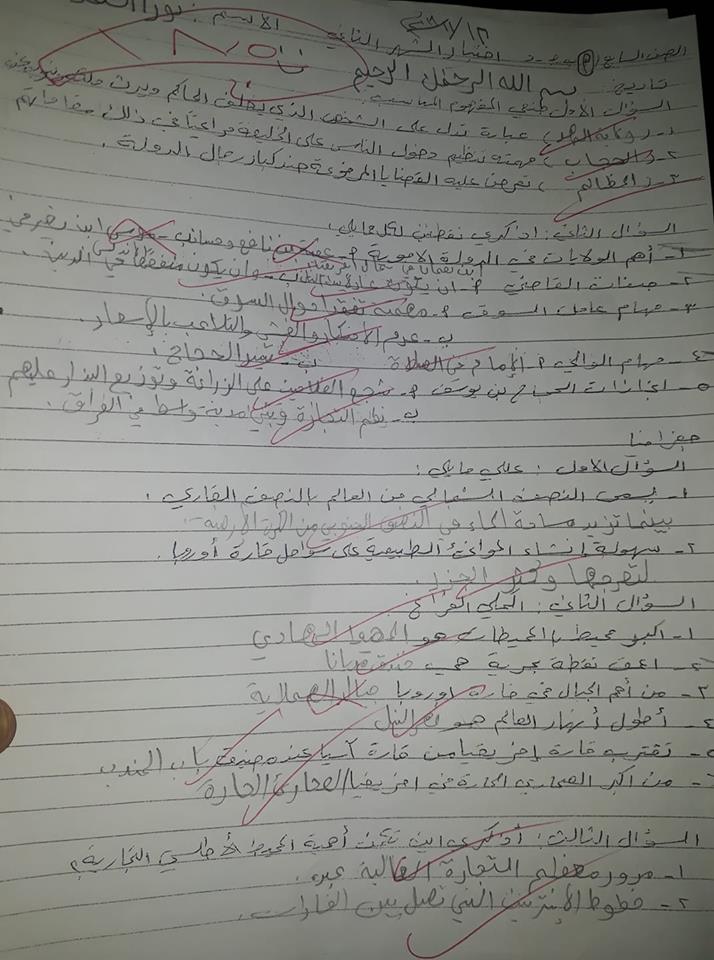 الصف السابع (أ) اختبار الشهر الثاني الاسم: نور
بسم الله الرحمن الرحيم
تاريخ:
السؤال الأول: ضعي المفهوم المناسب:
١- (ولاية العهد) عبارة تدل على الشخص الذي يخلف الحاكم ويرث
٢- (الحجاب) مهمته تنظيم دخول الناس على الخليفة مراعيا في ذلك مقاماتهم
٣- (المظالم) تعرض عليه القضايا المرفوعة ضد كبار رجال الدولة.
السؤال الثاني: اذكري نقطتين لكل مما يلي:
١- أهم الولايات في الدولة الأموية أ- عقبة بن نافع وحسان بن نعمان في شمال أفريقيا ب- موسى ابن نصير في الأندلس
٢- صفات القاضي أ- ان يكون ب- وان يكون متفقها في الدين.
٣- مهام عامل السوق أ- مهمته تفقد احوال السوق.
ب- عدم الاحتكار والغش والتلاعب بالإسعار.
٤- مهام الوالي أ- الإمام في الصلاة ب- تسير الحجاج.
٥- انجازات الحجاج بن يوسف أ- شجع الفلاحين على الزراعة وتوزيع البذار عليهم
ب- نظم التجارة وبنى مدينة واسط في العراق.
جغرافيا
السؤال الأول: عللي ما يلي:
١- يسمى النصف الشمالي من العالم بالنصف القاري.
بينما تزيد مساحة الماء في النصف الجنوبي من الكرة الأرضية.
٢- سهولة إنشاء الموانئ الطبيعية على سواحل قارة أوروبا.
لتعرجها وكثر الجزر.
السؤال الثاني: اكملي الفراغ
١- اكبر محيط بالمحيطات هو المحيط الهادي
٢- اعمق نقطة بحرية هي خندق ماريانا
٣- من أهم الجبال في قارة اوروبا جبال الهملاية
٤- أطول أنهار العالم هو نهر النيل
٥- تقترب قارة إفريقيا من قارة آسيا عند مضيق باب المندب
٦- من أكبر الصحاري الحارة في افريقيا الصحاري الحارة
السؤال الثالث: أذكري اين تكمن أهمية المحيط الأطلسي التجارية؟
١- مرور معظم التجارة العالمية عبره.
٢- خطوط الإنترنيت التي تصل بين القارات.